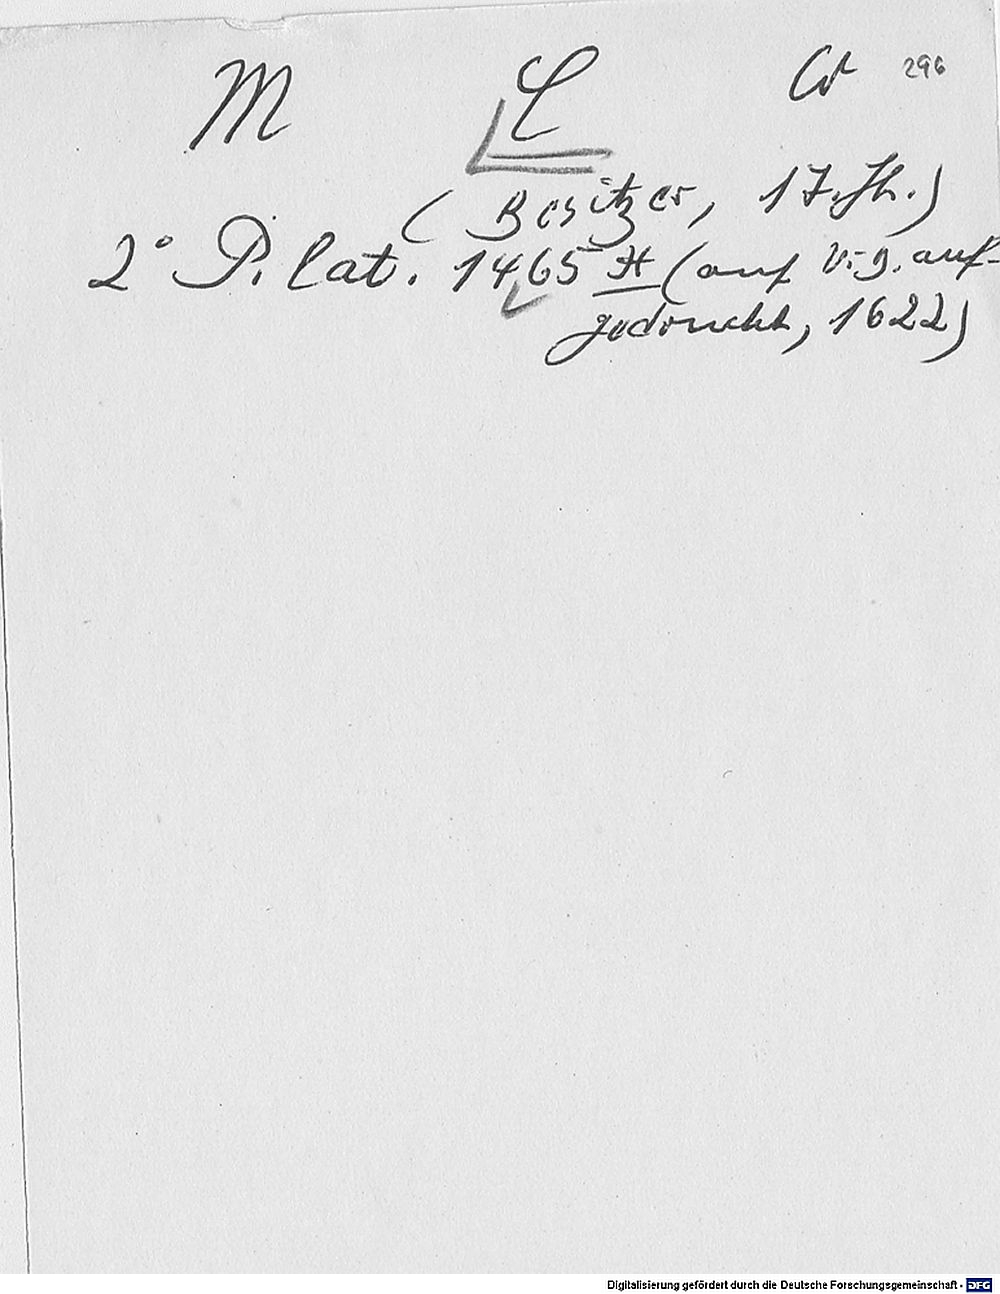 M L 296
(Besitzer, 17. Jh.)
2° P. lat. 1465 H (auf V.g. auf-
gedruckt, 1622)
Digitalisierung gefördert durch die Deutsche Forschungsgemeinschaft - DFG